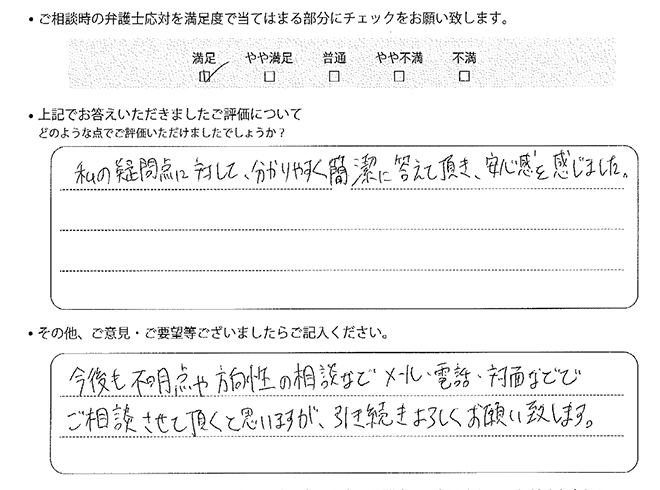 ・ご相談時の弁護士応対を満足度で当てはまる部分にチェックをお願い致します。
満足 やや満足 普通 やや不満 不満
・上記でお答えいただきましたご評価について
どのような点でご評価いただけましたでしょうか？
私の疑問点に対して、分かりやすく簡潔に答えて頂き、安心感を感じました。
・その他、ご意見・ご要望等ございましたらご記入ください。
今後も不明点や方向性の相談などメール・電話・対面などで
ご相談させて頂くと思いますが、引き続きよろしくお願い致します。